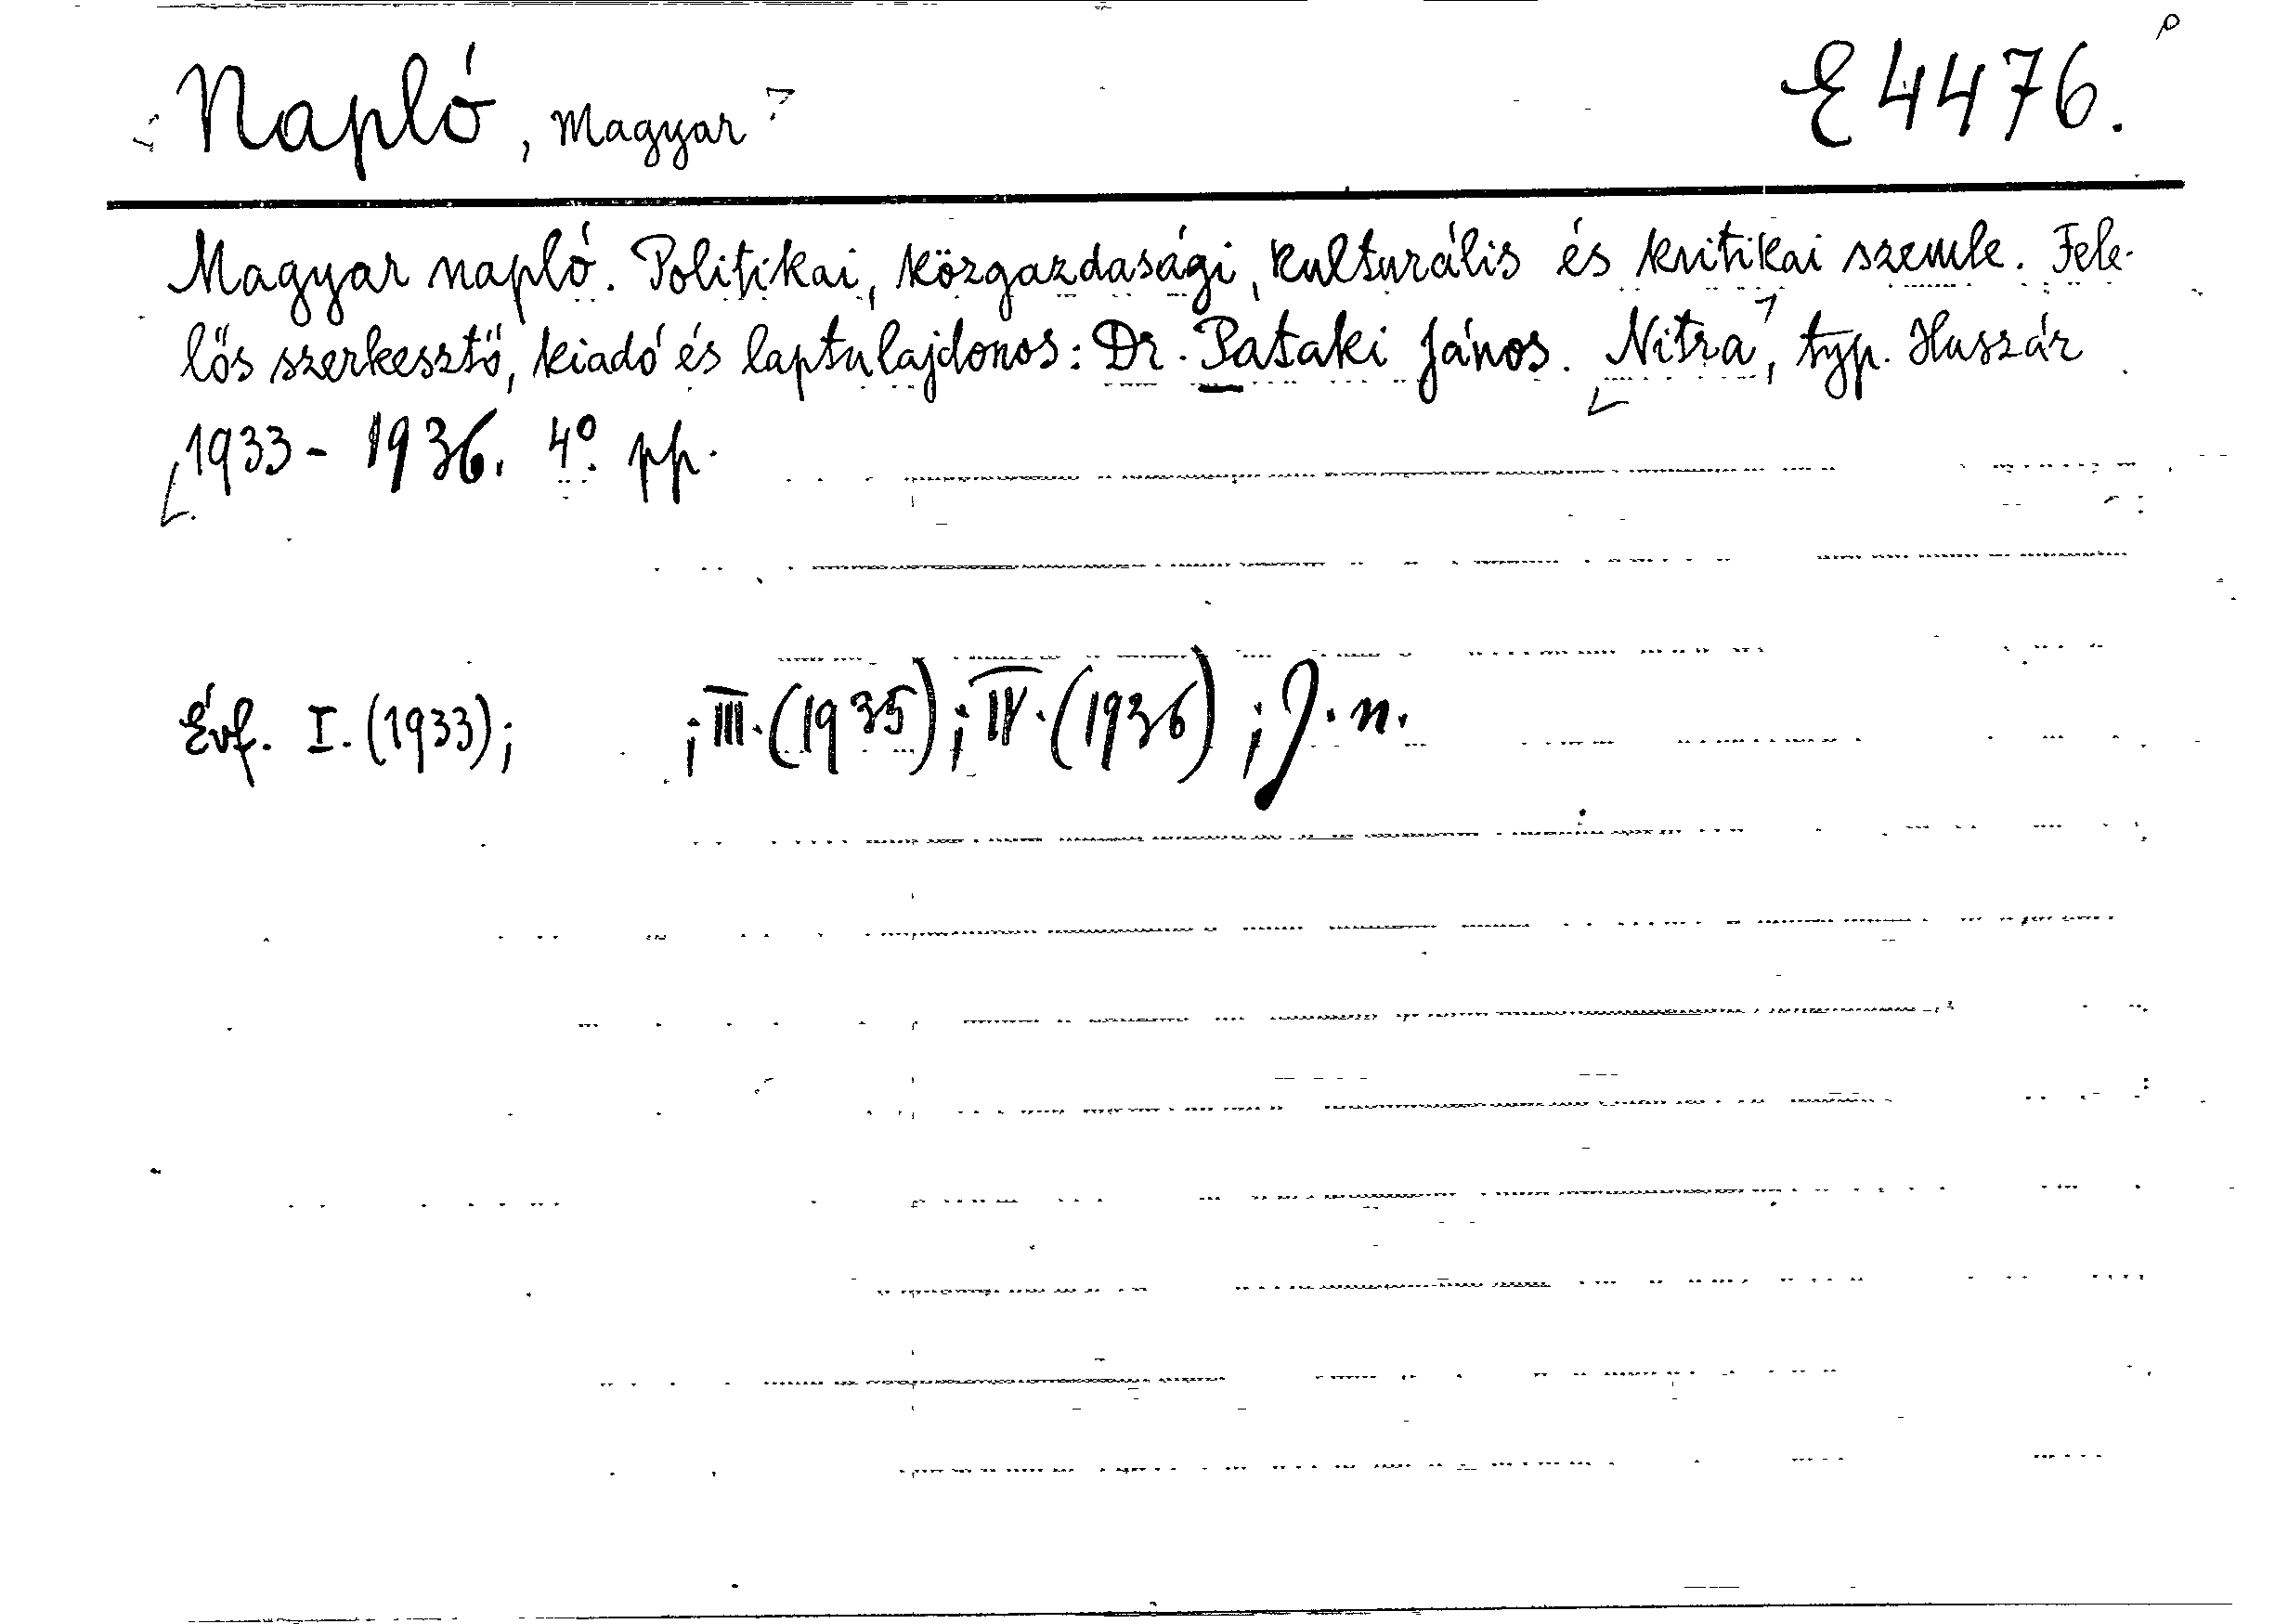 Napló, Magyar E 4476.
Magyar napló. Politikai, közgazdasági, kulturális és kritikai szemle. Fele-
lős szerkesztő, kiadó és laptulajdonos: Dr. Pataki János. Nitra, typ. Huszár
1933-1936. 4º. pp.
Évf. I. (1933); ; III. (1935); IV. (1936); J. n.